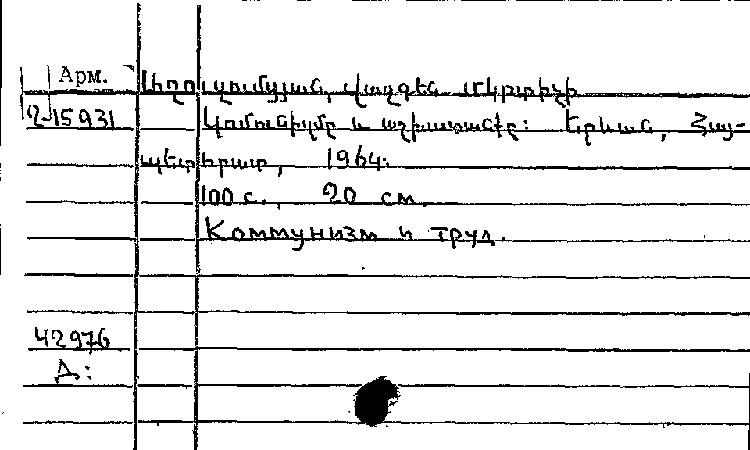 Арм. Վազգեն Մկրտիչի
2-15931 Կոմունիզմը և աշխատանքը: Երևան, Հայ-
պետհրատ, 1964.
100 с., 20 см.
Коммунизм и труд.
42976
Д: